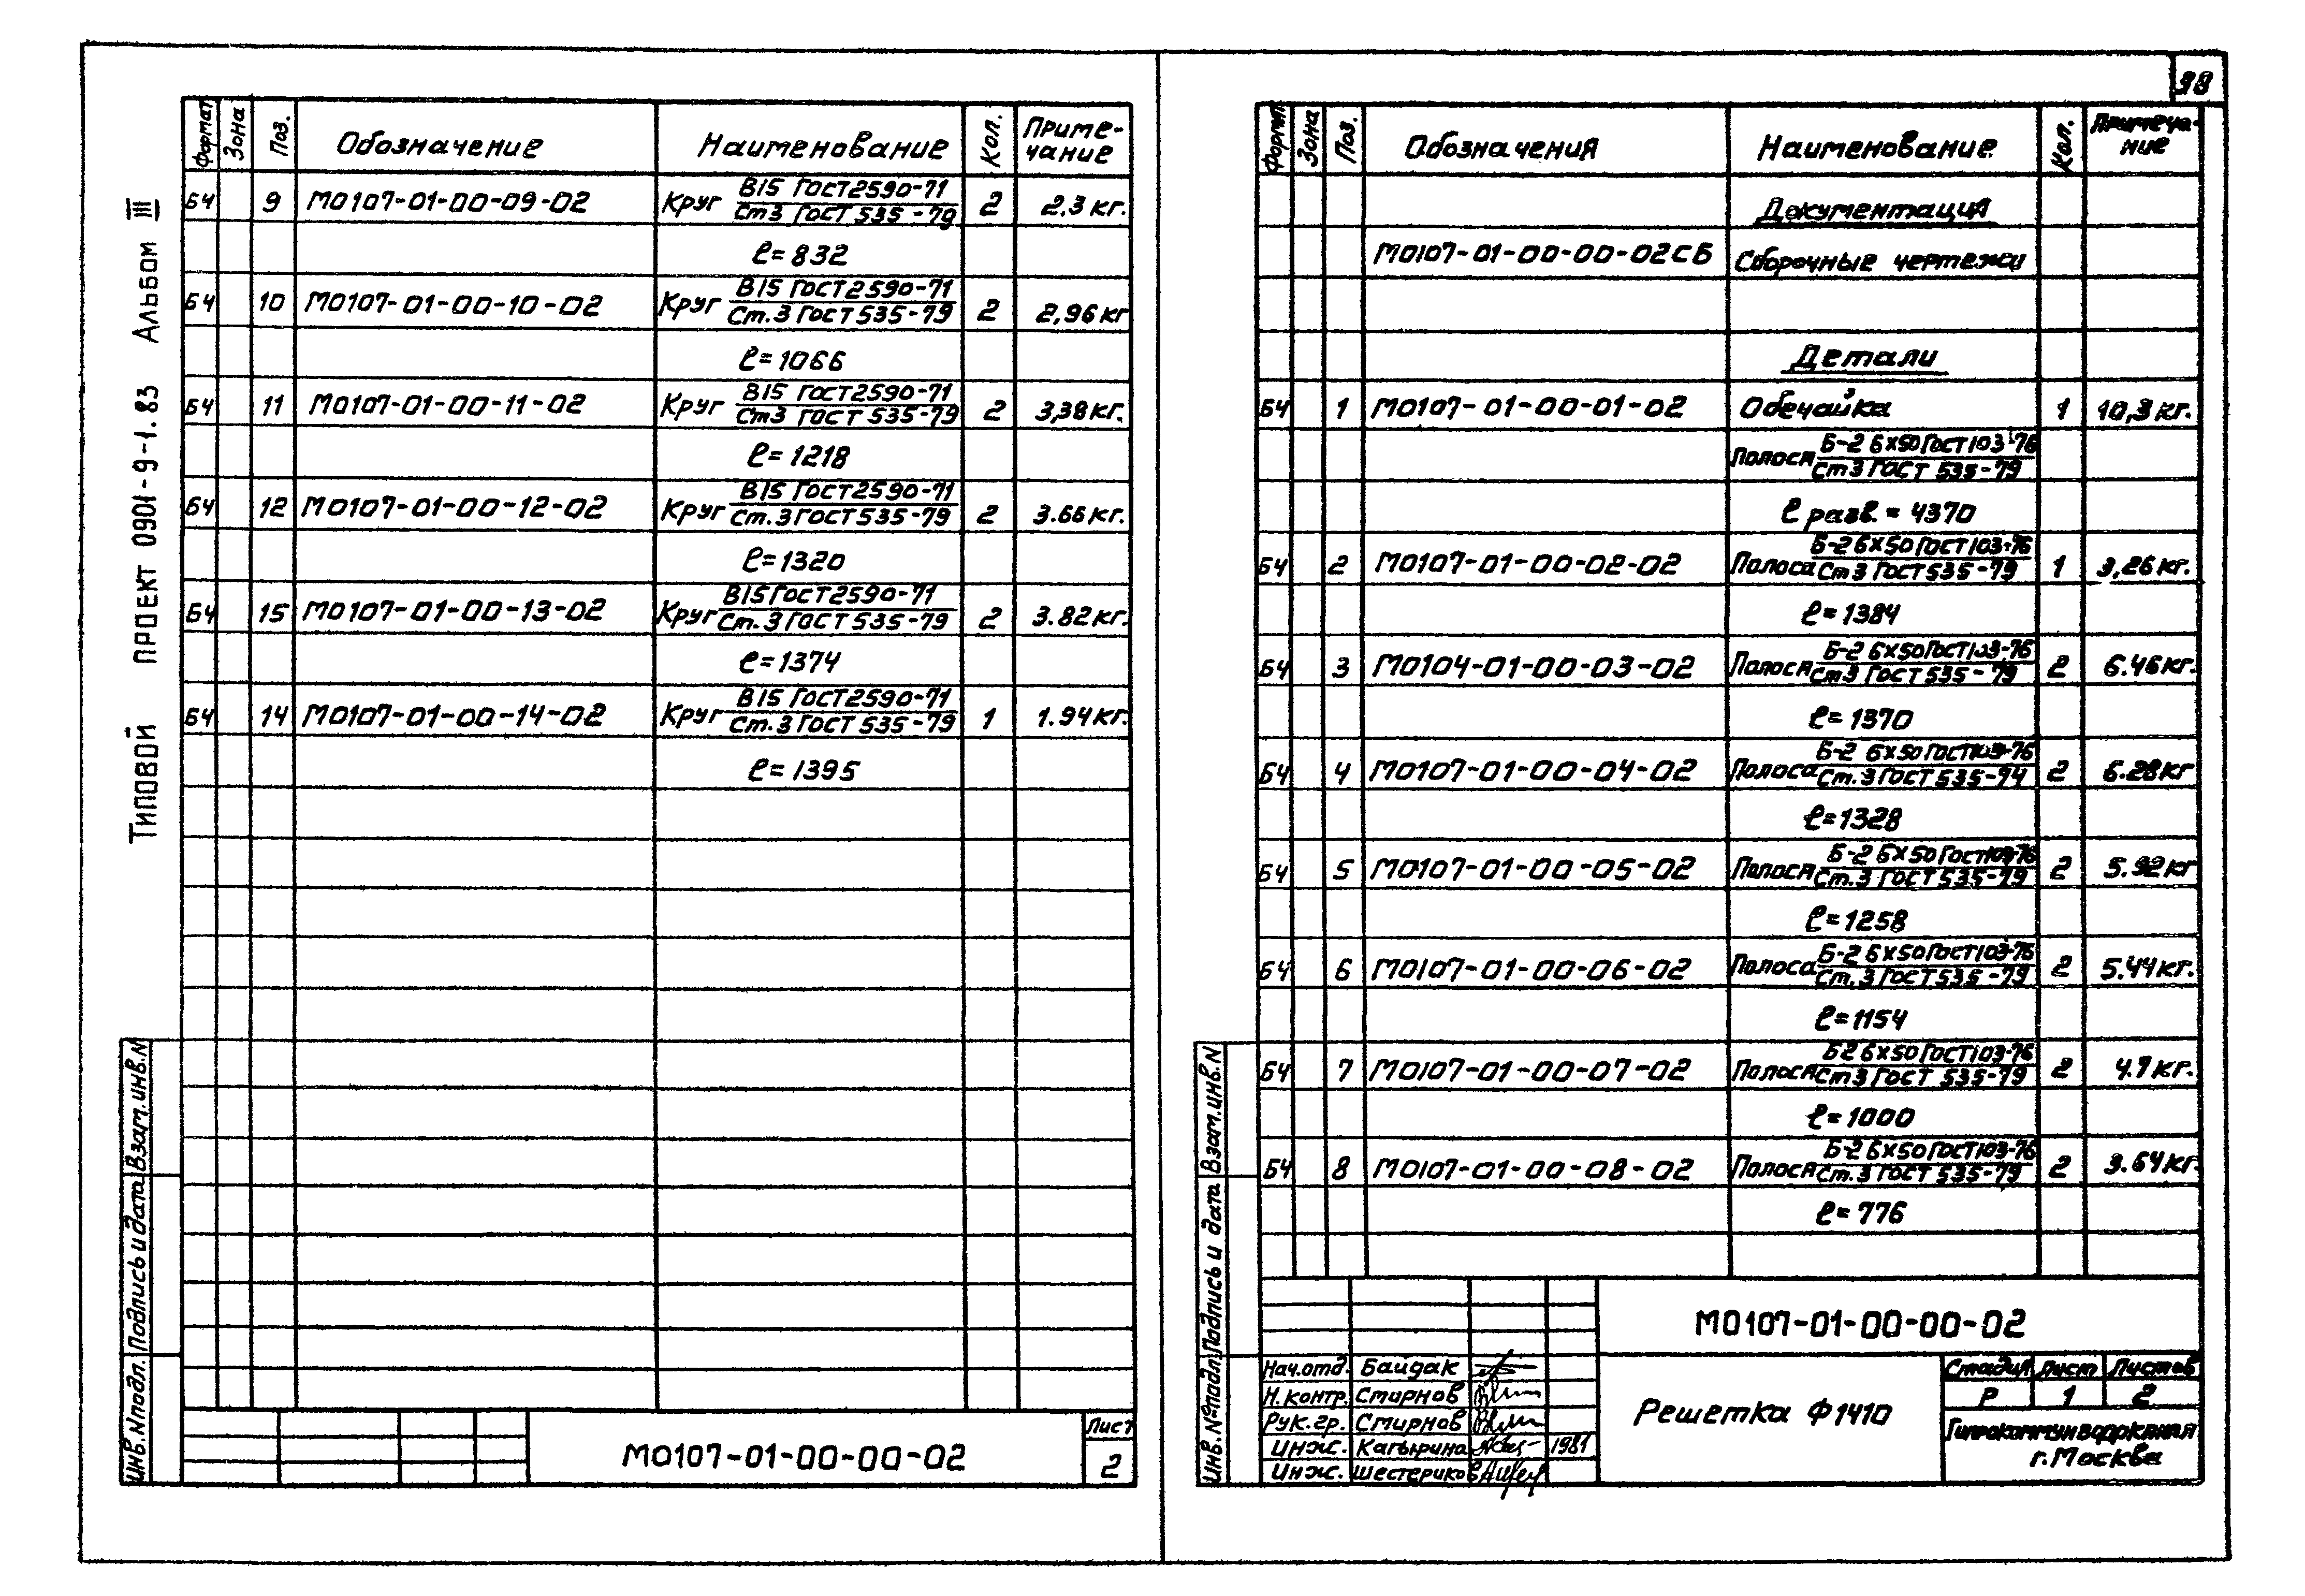 98
Типовой проект 0901-9-1.83 Альбом III
Формат Зона Поз. Обозначение Наименование Кол. Приме-
чание
Б4 9 М0107-01-00-09-02 Круг В15 ГОСТ2590-71 2 2,3 кг.
Ст3 ГОСТ 535-79
ℓ=832
Б4 10 М0107-01-00-10-02 Круг В15 ГОСТ2590-71 2 2,96кг
Ст.3 ГОСТ 535-79
ℓ=1066
Б4 11 М0107-01-00-11-02 Круг В15 ГОСТ2590-71 2 3,38кг.
Ст3 ГОСТ 535-79
ℓ=1218
Б4 12 М0107-01-00-12-02 Круг В15 ГОСТ2590-71 2 3.66кг.
Ст.3 ГОСТ 535-79
ℓ=1320
Б4 15 М0107-01-00-13-02 Круг В15 ГОСТ2590-71 2 3.82кг.
Ст.3 ГОСТ 535-79
ℓ=1374
Б4 14 М0107-01-00-14-02 Круг В15 ГОСТ2590-71 1 1.94кг.
Ст.3 ГОСТ 535-79
ℓ=1395
Инв.Nподл. Подпись и дата Взам.инв.N
М0107-01-00-00-02
Лист
2
Формат Зона Поз. Обозначения Наименование Кол. Примеча-
ние
Документация
М0107-01-00-00-02СБ Сборочные чертежи
Детали
Б4 1 М0107-01-00-01-02 Обечайка 1 10,3 кг.
Полоса Б-2 6х50 ГОСТ103-76
Ст3 ГОСТ 535-79
ℓ разв. = 4370
Б4 2 М0107-01-00-02-02 Полоса Б-2 6х50 ГОСТ103-76 1 3,26кг.
Ст3 ГОСТ535-79
ℓ=1384
Б4 3 М0104-01-00-03-02 Полоса Б-2 6х50 ГОСТ103-76 2 6.46кг.
Ст3 ГОСТ 535-79
ℓ=1370
Б4 4 М0107-01-00-04-02 Полоса Б-2 6х50 ГОСТ103-76 2 6.28кг
Ст.3 ГОСТ 535-74
ℓ=1328
Б4 5 М0107-01-00-05-02 Полоса Б-2 6х50 ГОСТ103-76 2 5.92кг
Ст.3 ГОСТ 535-79
ℓ=1258
Б4 6 М0107-01-00-06-02 Полоса Б-2 6х50 ГОСТ103-76 2 5.44кг.
Ст.3 ГОСТ 535-79
ℓ=1154
Б4 7 М0107-01-00-07-02 Полоса Б2 6х50 ГОСТ103-76 2 4.7 кг.
Ст3 ГОСТ 535-79
ℓ=1000
Б4 8 М0107-01-00-08-02 Полоса Б-2 6х50 ГОСТ103-76 2 3.64кг.
Ст.3 ГОСТ 535-79
ℓ=776
Инв.Nºподл. Подпись и дата Взам.инв.N
М0107-01-00-00-02
Нач.отд. Байдак
Н.контр. Смирнов
Рук.гр. Смирнов
Инж. Кагырина 1981
Инж. Шестериков
Решетка Ф1410
Стадия Лист Листов
Р 1 2
Гипрокоммунводоканал
г.Москва